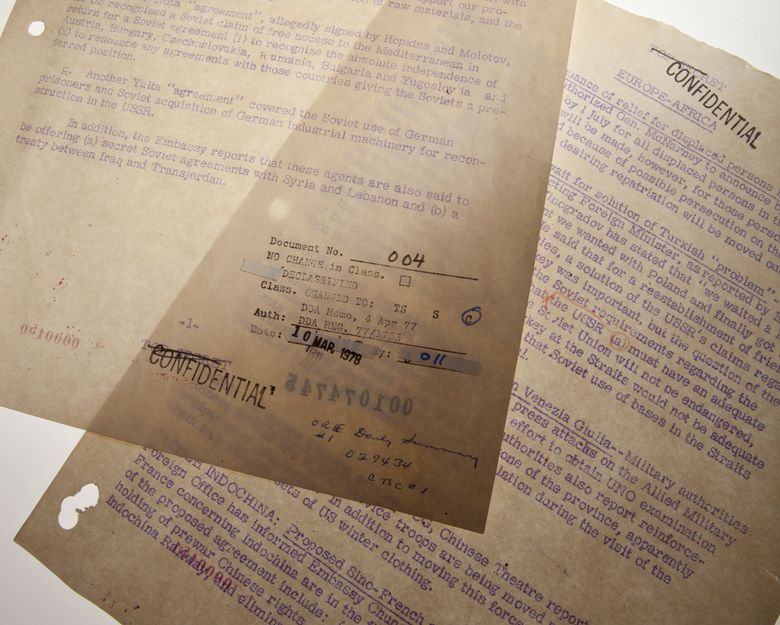 "agreement", allegedly signed by Hopkins and Molotov,
US recognised a Soviet claim of free access to the Mediterranean in
return for a Soviet agreement (1) to recognize the absolute independence of
Austria, Hungary, Czechoslovakia, Rumania, Bulgaria and Yugoslovia and
(2) to renounce any agreements with those countries giving the Soviets a pre-
ferred position.
Another Yalta "agreement" covered the Soviet use of German
prisoners and Soviet acquisition of German industrial machinery for recon-
struction in the USSR.
In addition, the Embassy reports that these agents are also said to
be offering (a) secret Soviet agreements with Syria and Lebanon and (b) a
treaty between Iraq and Transjordan.
Document No. 004
NO CHANGE in Class. □
DECLASSIFIED
Class. CHANGED TO: TS S C
DDA Memo, 4 Apr 77
Auth: DDA REG. 77/1763
Date: 10 MAR 1978 By: 011
-1-
CONFIDENTIAL
0000150
001074745
ORE Daily Summary
#1
029434
CONFIDENTIAL
EUROPE-AFRICA
uance of relief for displaced persons
uthorized Gen. McNarney to announce
by 1 July for all displaced persons in
will be made, however, for those
d because of possible persecution on the
desiring repatriation will be moved
wait for solution of Turkish "problem".
cting Foreign Minister, as reported by
nogradov has stated that "we waited a
nt we wanted with Poland and finally got
he said that for a reestablishment of
ries, a solution of the USSR's claims
key was important, but the question of the
the Soviet requirements regarding the
hat the USSR must have an adequate
Soviet Union will not be endangered,
key at the Straits would not be adequate
that Soviet use of bases in the Straits
Venezia Giulia--Military authorities
press attacks on the Allied Military
effort to obtain UNO examination
authorities also report reinforce-
one of the province, apparently
lation during the visit of the
Chinese Theatre
troops are being moved
In addition to moving this force
sets of US winter clothing.
INDOCHINA: Proposed Sino-French
Foreign Office has informed Embassy
France concerning Indochina are in the
of the proposed agreement include:
holding of prewar Chinese rights
Indochina